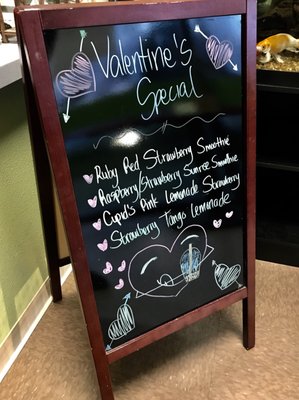 Valentine's
Special
Ruby Red Strawberry Smoothie
Raspberry/Strawberry Sunrise Smoothie
Cupid's Pink Lemonade Strawberry
Strawberry Tango Lemonade